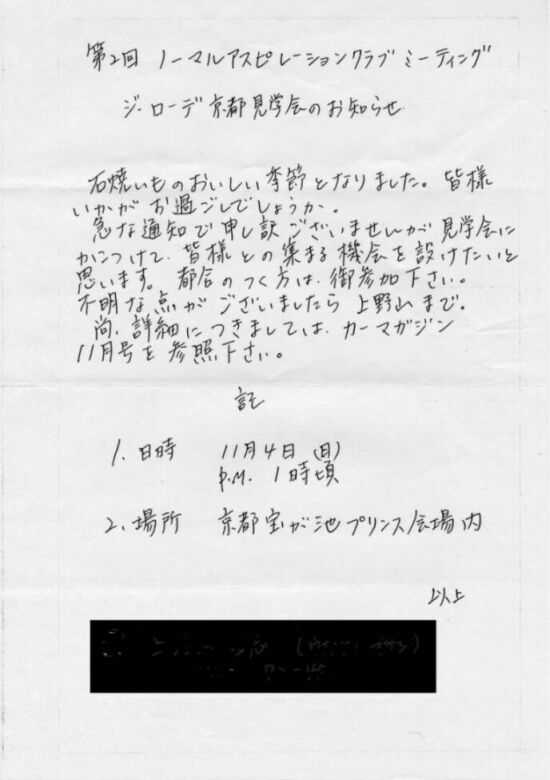 第2回 ノーマルアスピレーションクラブ ミーティング
ジーローデ京都見学会のお知らせ
石焼いものおいしい季節となりました。皆様
いかがお過ごしでしょうか。
急な通知で申し訳ございませんが見学会に
かこつけて、皆様との集まる機会を設けたいと
思います。都合のつく方は、御参加下さい。
不明な点がございましたら上野山まで。
尚、詳細につきましては、カーマガジン
11月号を参照下さい。
記
1. 日時 11月4日(日)
P.M. 1時頃
2. 場所 京都宝が池プリンス会場内
以上